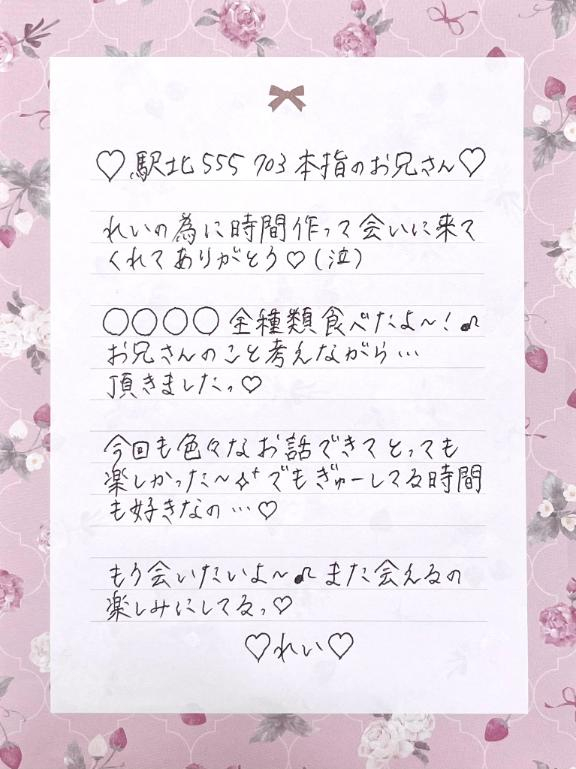 ♡駅北555 703本指のお兄さん♡
れいの為に時間作って会いに来て
くれてありがとう♡(泣)
○○○○全種類食べたよ〜!♫
お兄さんのこと考えながら…
頂きましたっ♡
今回も色々なお話できてとっても
楽しかった〜✧⁺でもぎゅーしてる時間
も好きなの…♡
もう会いたいよ〜♫また会えるの
楽しみにしてるっ♡
♡れい♡